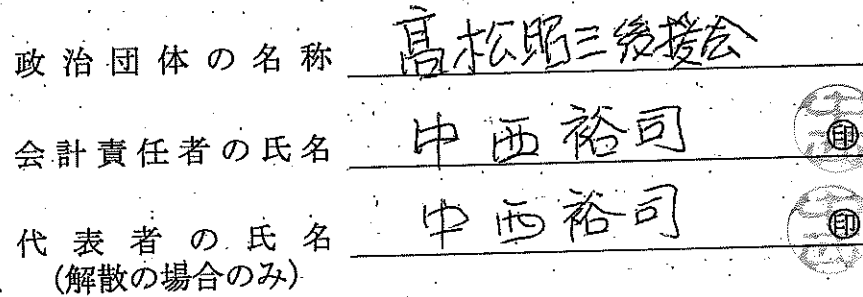 政治団体の名称 髙松昭三後援会
会計責任者の氏名 中西裕司 印
代表者の氏名 中西裕司 印
(解散の場合のみ)